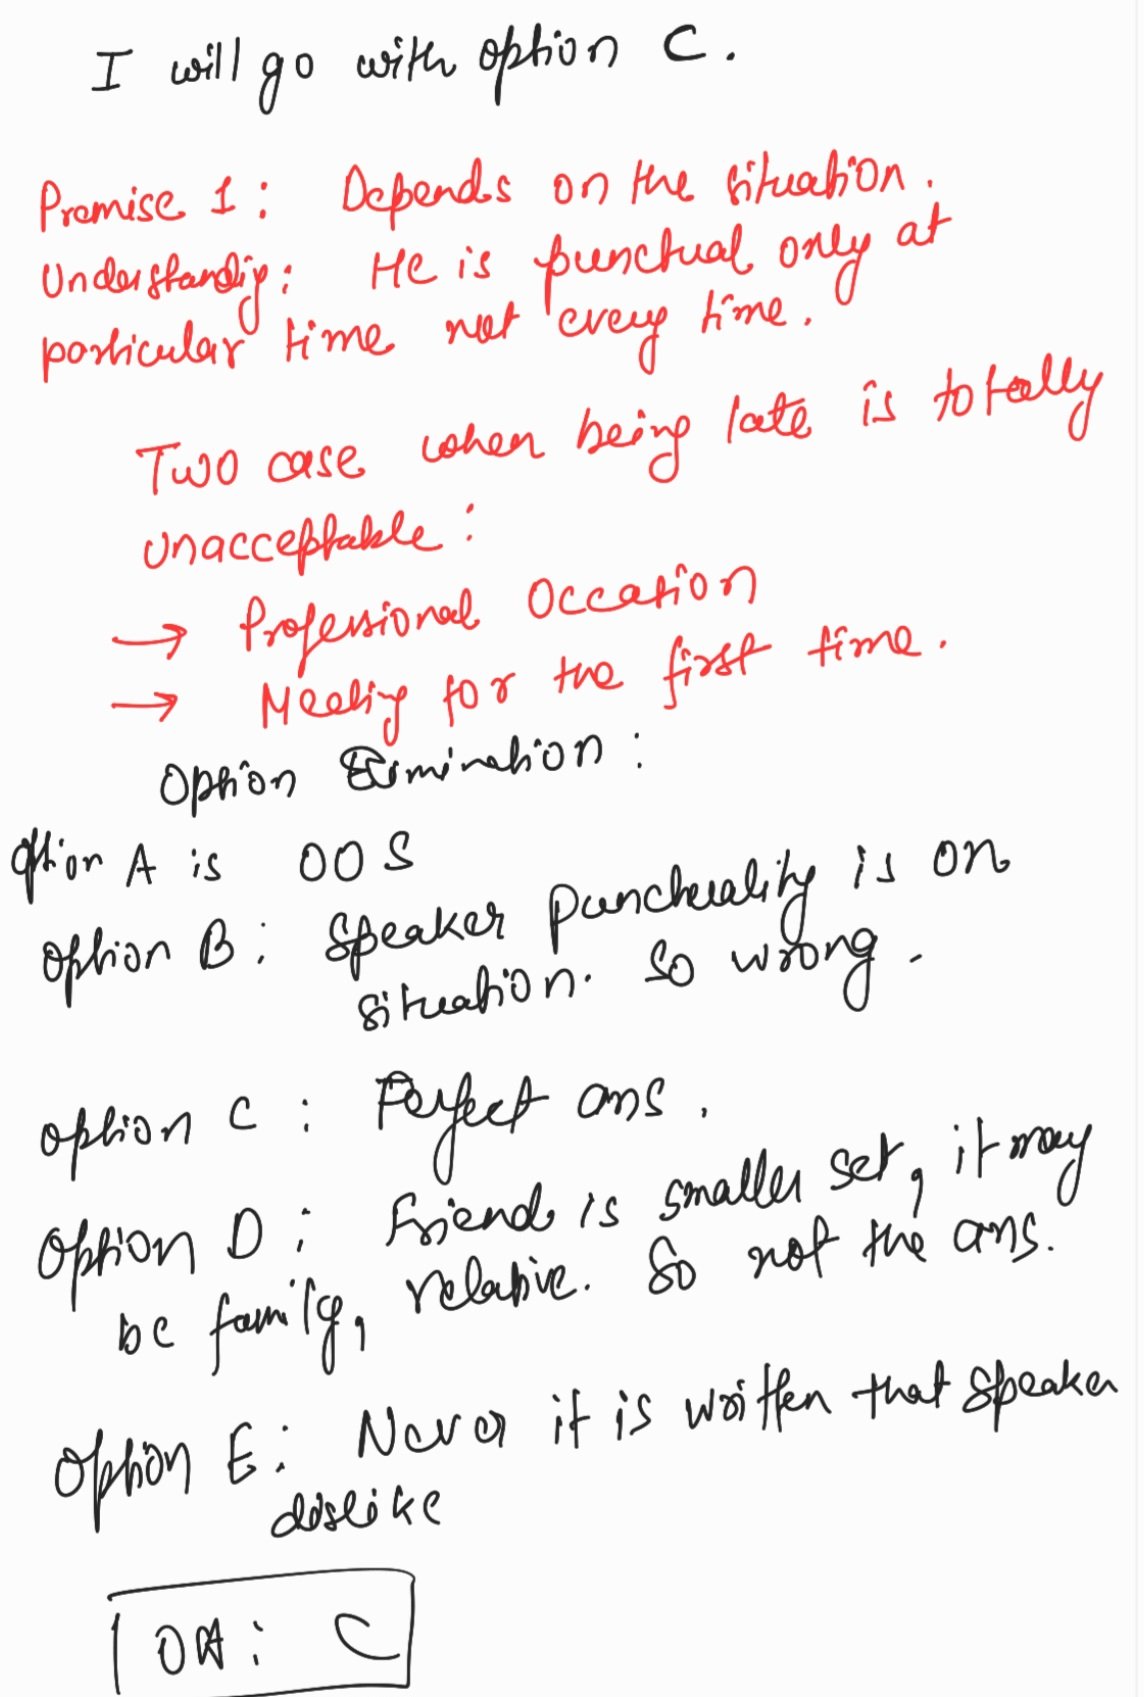 I will go with option C.
Premise 1: Depends on the situation.
Understandig: He is punctual only at
particular time not every time.
Two case when being late is totally
unacceptable:
→ Professional Occation
→ Meeting for the first time.
Option Elimination:
Option A is OOS
Option B: Speaker punctuality is on
situation. So wrong.
Option C: Perfect ans.
Option D: Friend is smaller set, it may
be family, relative. So not the ans.
Option E: Never it is written that speaker
dislike
OA: C